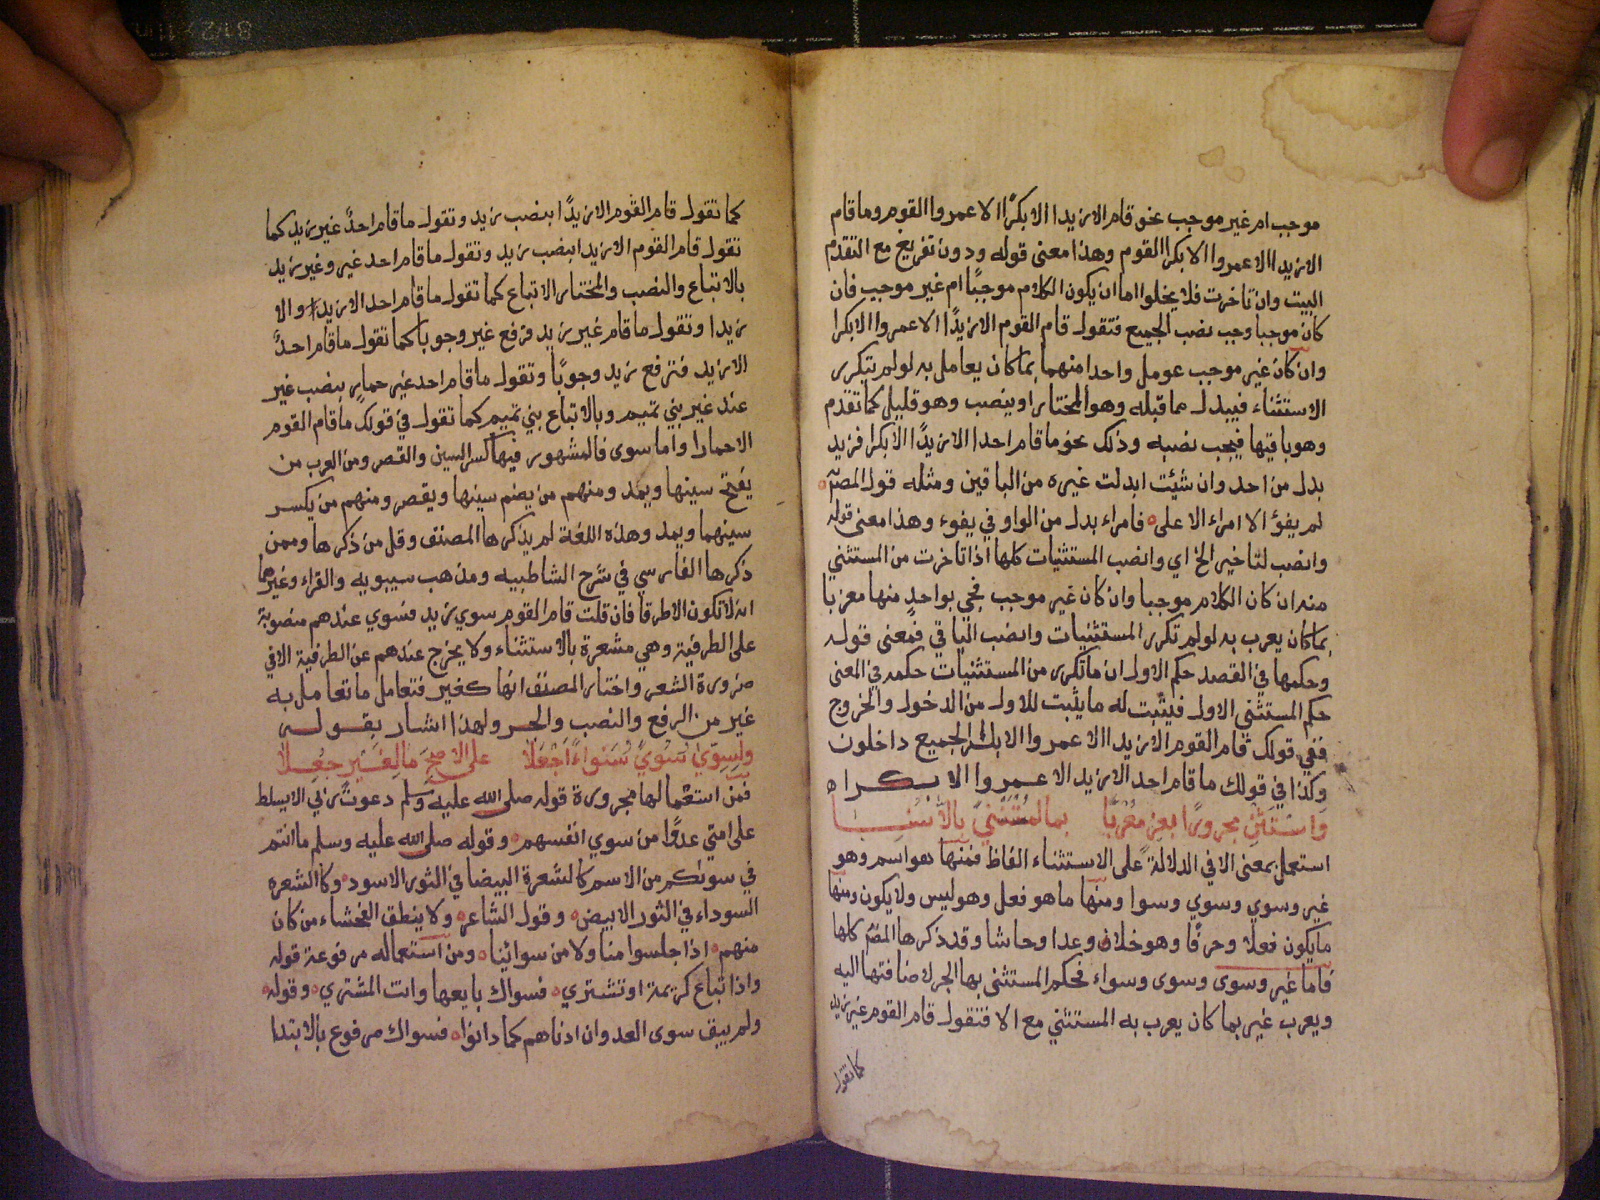 موجب ام غير موجب نحو قام الا زيدا الا بكرًا الا عمروا القوم وما قام
الا زيدا الا عمروا الا بكرا القوم وهذا معنى قوله ودون تفريغ مع التقدم
البيت وان تاخرت فلا يخلوا اما ان يكون الكلام موجبًا ام غير موجب فان
كان موجبا وجب نصب الجميع فتقول قام القوم الا زيدًا الا عمروا الا بكرا
وان كان غير موجب عومل واحدا منهما بما كان يعامل به لو لم تتكرر
الاستثناء فيبدل مما قبله وهو المختار او ينصب وهو قليل كما تقدم
وهو باقيها فيجب نصبه وذلك نحو ما قام احدا الا زيدًا الا بكرا فزيد
بدل من احد وان شئت ابدلت غيره من الباقين ومثله قول المصنف
لم يفؤ الا امراء الا على فامراء بدل من الواو في يفوء وهذا معنى قوله
وانصب لتاخير الخ اي وانصب المستثنيات كلها اذا تاخرت من المستثني
منه ان كان الكلام موجبا وان كان غير موجب فجي بواحدٍ منها معربا
بما كان يعرب به لو لم تكرر المستثنيات وانصب الباقي فمعنى قوله
وحكمها في القصد حكم الاول ان ما تكرر من المستثنيات حكمه في المعنى
حكم المستثني الاول فيثبت له ما يثبت للاول من الدخول والخروج
ففي قولك قام القوم الا زيدا الا عمروا الا بكرا الجميع داخلون
وكذا في قولك ما قام احد الا زيد الا عمروا الا بكرا
وَاسْتَثْنِ مجرورًا بغير مُعْرَبًا بما لمُسْتَثْنًى بِالاَّ نُسِبَا
استعمل بمعنى الا في الدلالة على الاستثناء الفاظ فمنها ما هو اسم وهو
غير وسوي وسوي وسوا ومنها ما هو فعل وهو ليس ولا يكون ومنها
ما يكون فعلا وحرفًا وهو خلا وعدا وحاشا وقد ذكرها المص كلها
فاما غير وسوى وسوى وسواء فحكم المستثنى بها الجر لاضافتها اليه
ويعرب غير بما كان يعرب به المستثني مع الا فتقول قام القوم غير زيد
كما تقول
كما تقول قام القوم الا زيدًا بنصب زيد وتقول ما قام احدً غير زيد كما
تقول قام القوم الا زيدا بنصب زيد وتقول ما قام احد غير وغير زيد
بالاتباع والنصب والمختار الاتباع كما تقول ما قام احد الا زيد والا
زيدا وتقول ما قام غير زيد فرفع غير وجوبا كما تقول ما قام احدً
الا زيد فترفع زيد وجوبًا وتقول ما قام احد غير حمارٍ بنصب غير
عند غير بني تميم وبالاتباع بني تميم كما تقول في قولك ما قام القوم
الا حمارا واما سوى فالمشهور فيها كسر السين والقصر ومن العرب من
يفتح سينها ويمد ومنهم من يضم سينها ويقصر ومنهم من يكسر
سينهما ويمد وهذه اللغة لم يذكرها المصنف وقل من ذكرها وممن
ذكرها الفارسي في شرح الشاطبيه ومذهب سيبويه والفراء وغيرهما
انه لا تكون الا ظرفا فان قلت قام القوم سوي زيد فسوي عندهم منصوبة
على الظرفية وهي مشعرة بالاستثناء ولا يخرج عندهم عن الظرفية الا في
ضرورة الشعر واختار المصنف انها كغير فتعامل ما تعامل به
غير من الرفع والنصب والجر ولهذا اشار بقوله
ولِسِوًى سُوًى سَوَاءً اَجْعَلَا على الاصَحِّ ما لِغَيْرٍ جُعِلاَ
فمن استعمالها مجرورة قوله صلى الله عليه وسلم دعوت ربي الا يسلط
على امتي عدوًا من سوي انفسهم وقوله صلى الله عليه وسلم ما انتم
في سواكم من الامم كالشعرة البيضا في الثور الاسود وكالشعره
السوداء في الثور الابيض وقول الشاعر ولا ينطق الفحشاء من كان
منهم اذا جلسوا منا ولا من سوائنا ومن استعماله مرفوعة قوله
واذا تباع كريمة او تشتري فسواك بايعها وانت المشتري وقوله
ولم يبق سوى العدوان دناهم كما دانوا فسواك مرفوع بالابتدا